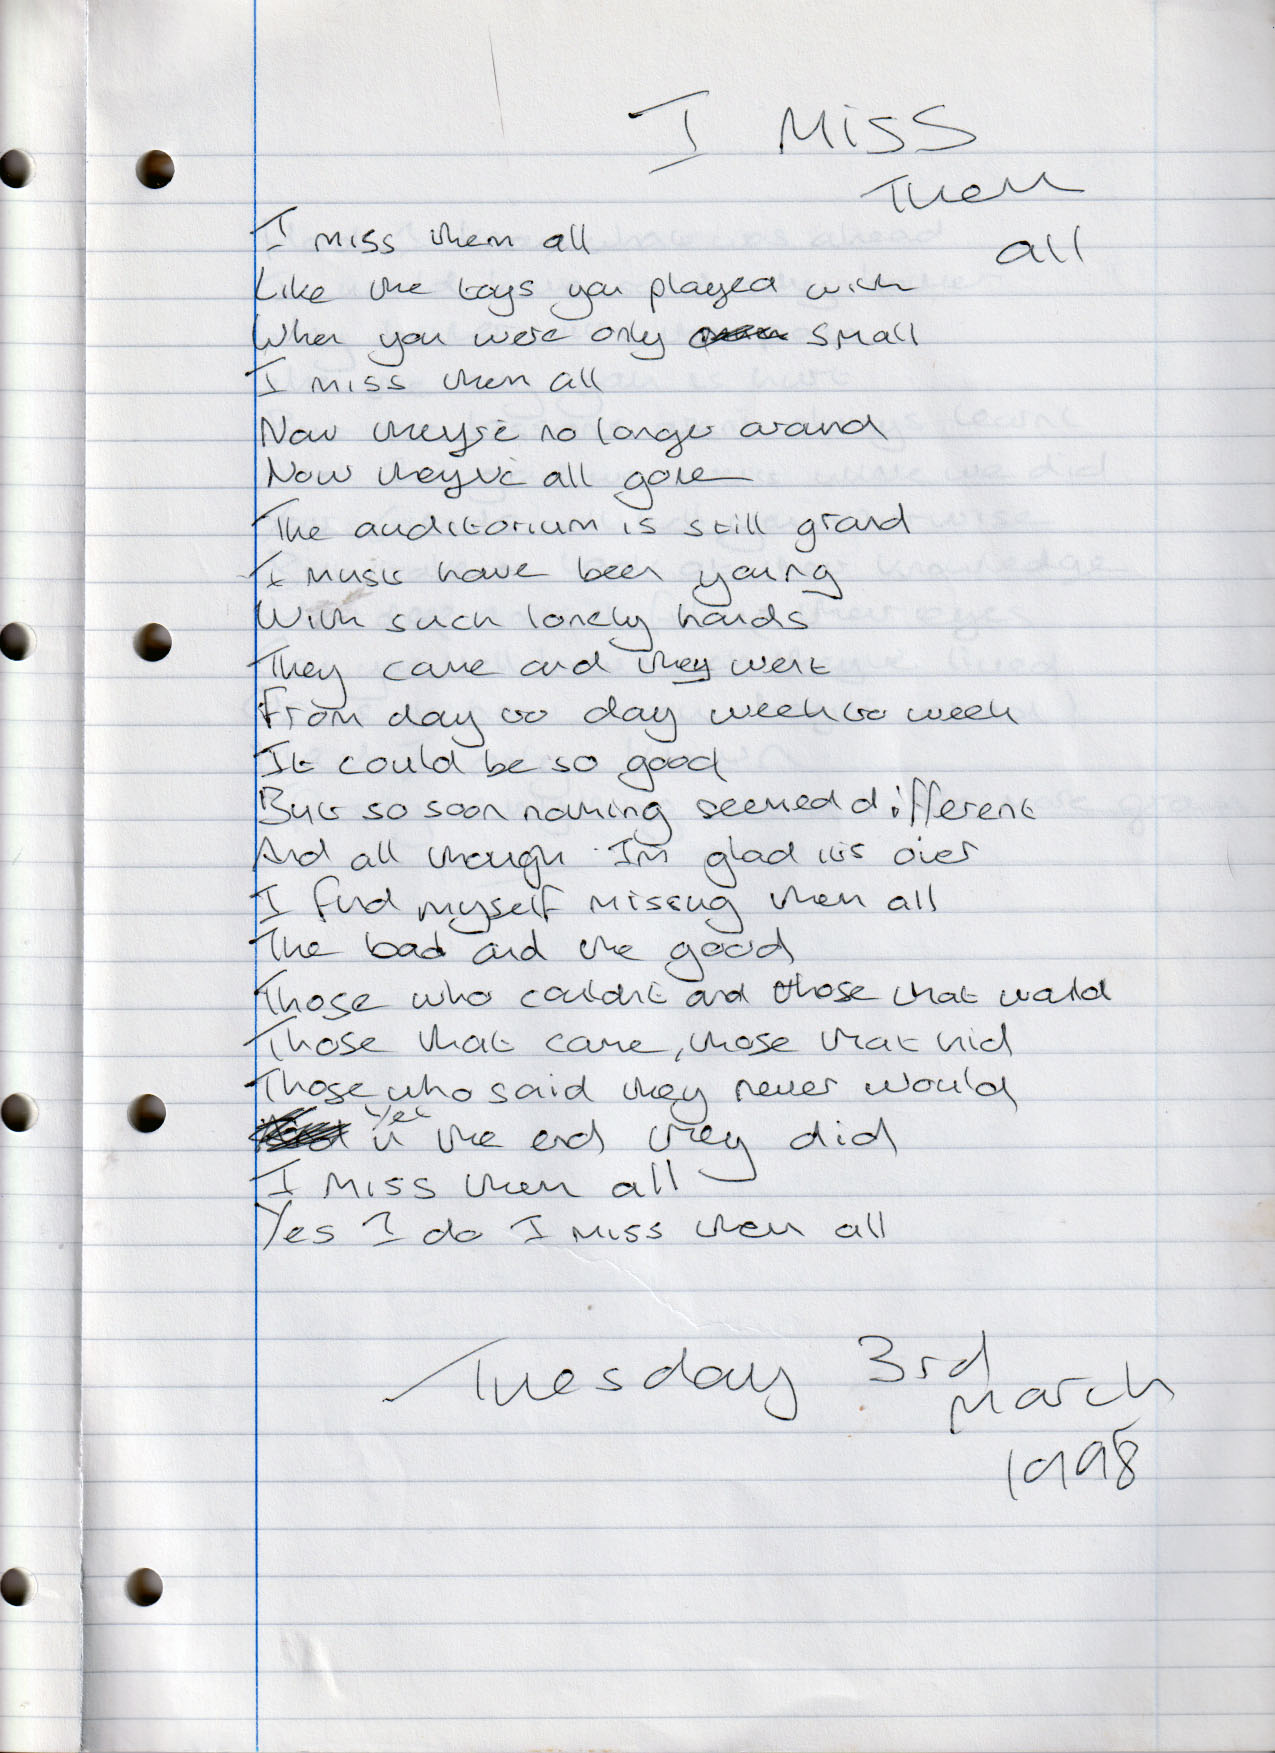 I Miss
Them
all
I miss them all
Like the toys you played with
When you were only small
I miss them all
Now they're no longer around
Now they've all gone
The auditorium is still grand
I must have been young
With such lonely hands
They came and they went
From day to day week to week
It could be so good
But so soon nothing seemed different
And all though I'm glad it's over
I find myself missing them all
The bad and the good
Those who couldn't and those that would
Those that came, those that hid
Those who said they never would
Yet in the end they did
I miss them all
Yes I do I miss them all
Tuesday 3rd
March
1998